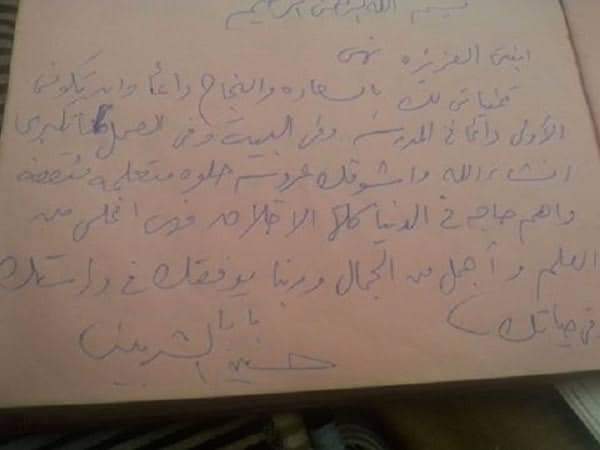 بسم الله الرحمن الرحيم
ابنتى العزيزه نهى
تمنياتى لك بالسعاده والنجاح دائما وان تكونى
الأولى دائما فى المدرسه وفى البيت وفى العمل لما تكبرى
انشاء الله واشوفك عروسه حلوه متعلمه مثقفه
واهم حاجه فى الدنيا كلها الاخلاق فهى اغلى من
العلم و أجمل من الجمال وربنا يوفقك فى دراستك
فى حياتك
بابا
حسين الشربينى